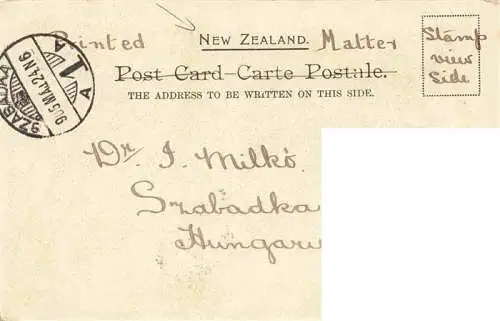 Printed NEW ZEALAND. Matter
Post Card-Carte Postale.
THE ADDRESS TO BE WRITTEN ON THIS SIDE.
Stamp
view
Side
SZABADKA
905 MAJ 24 N6
A 1 A
Dr. I. Milkó.
Szabadka
Hungar